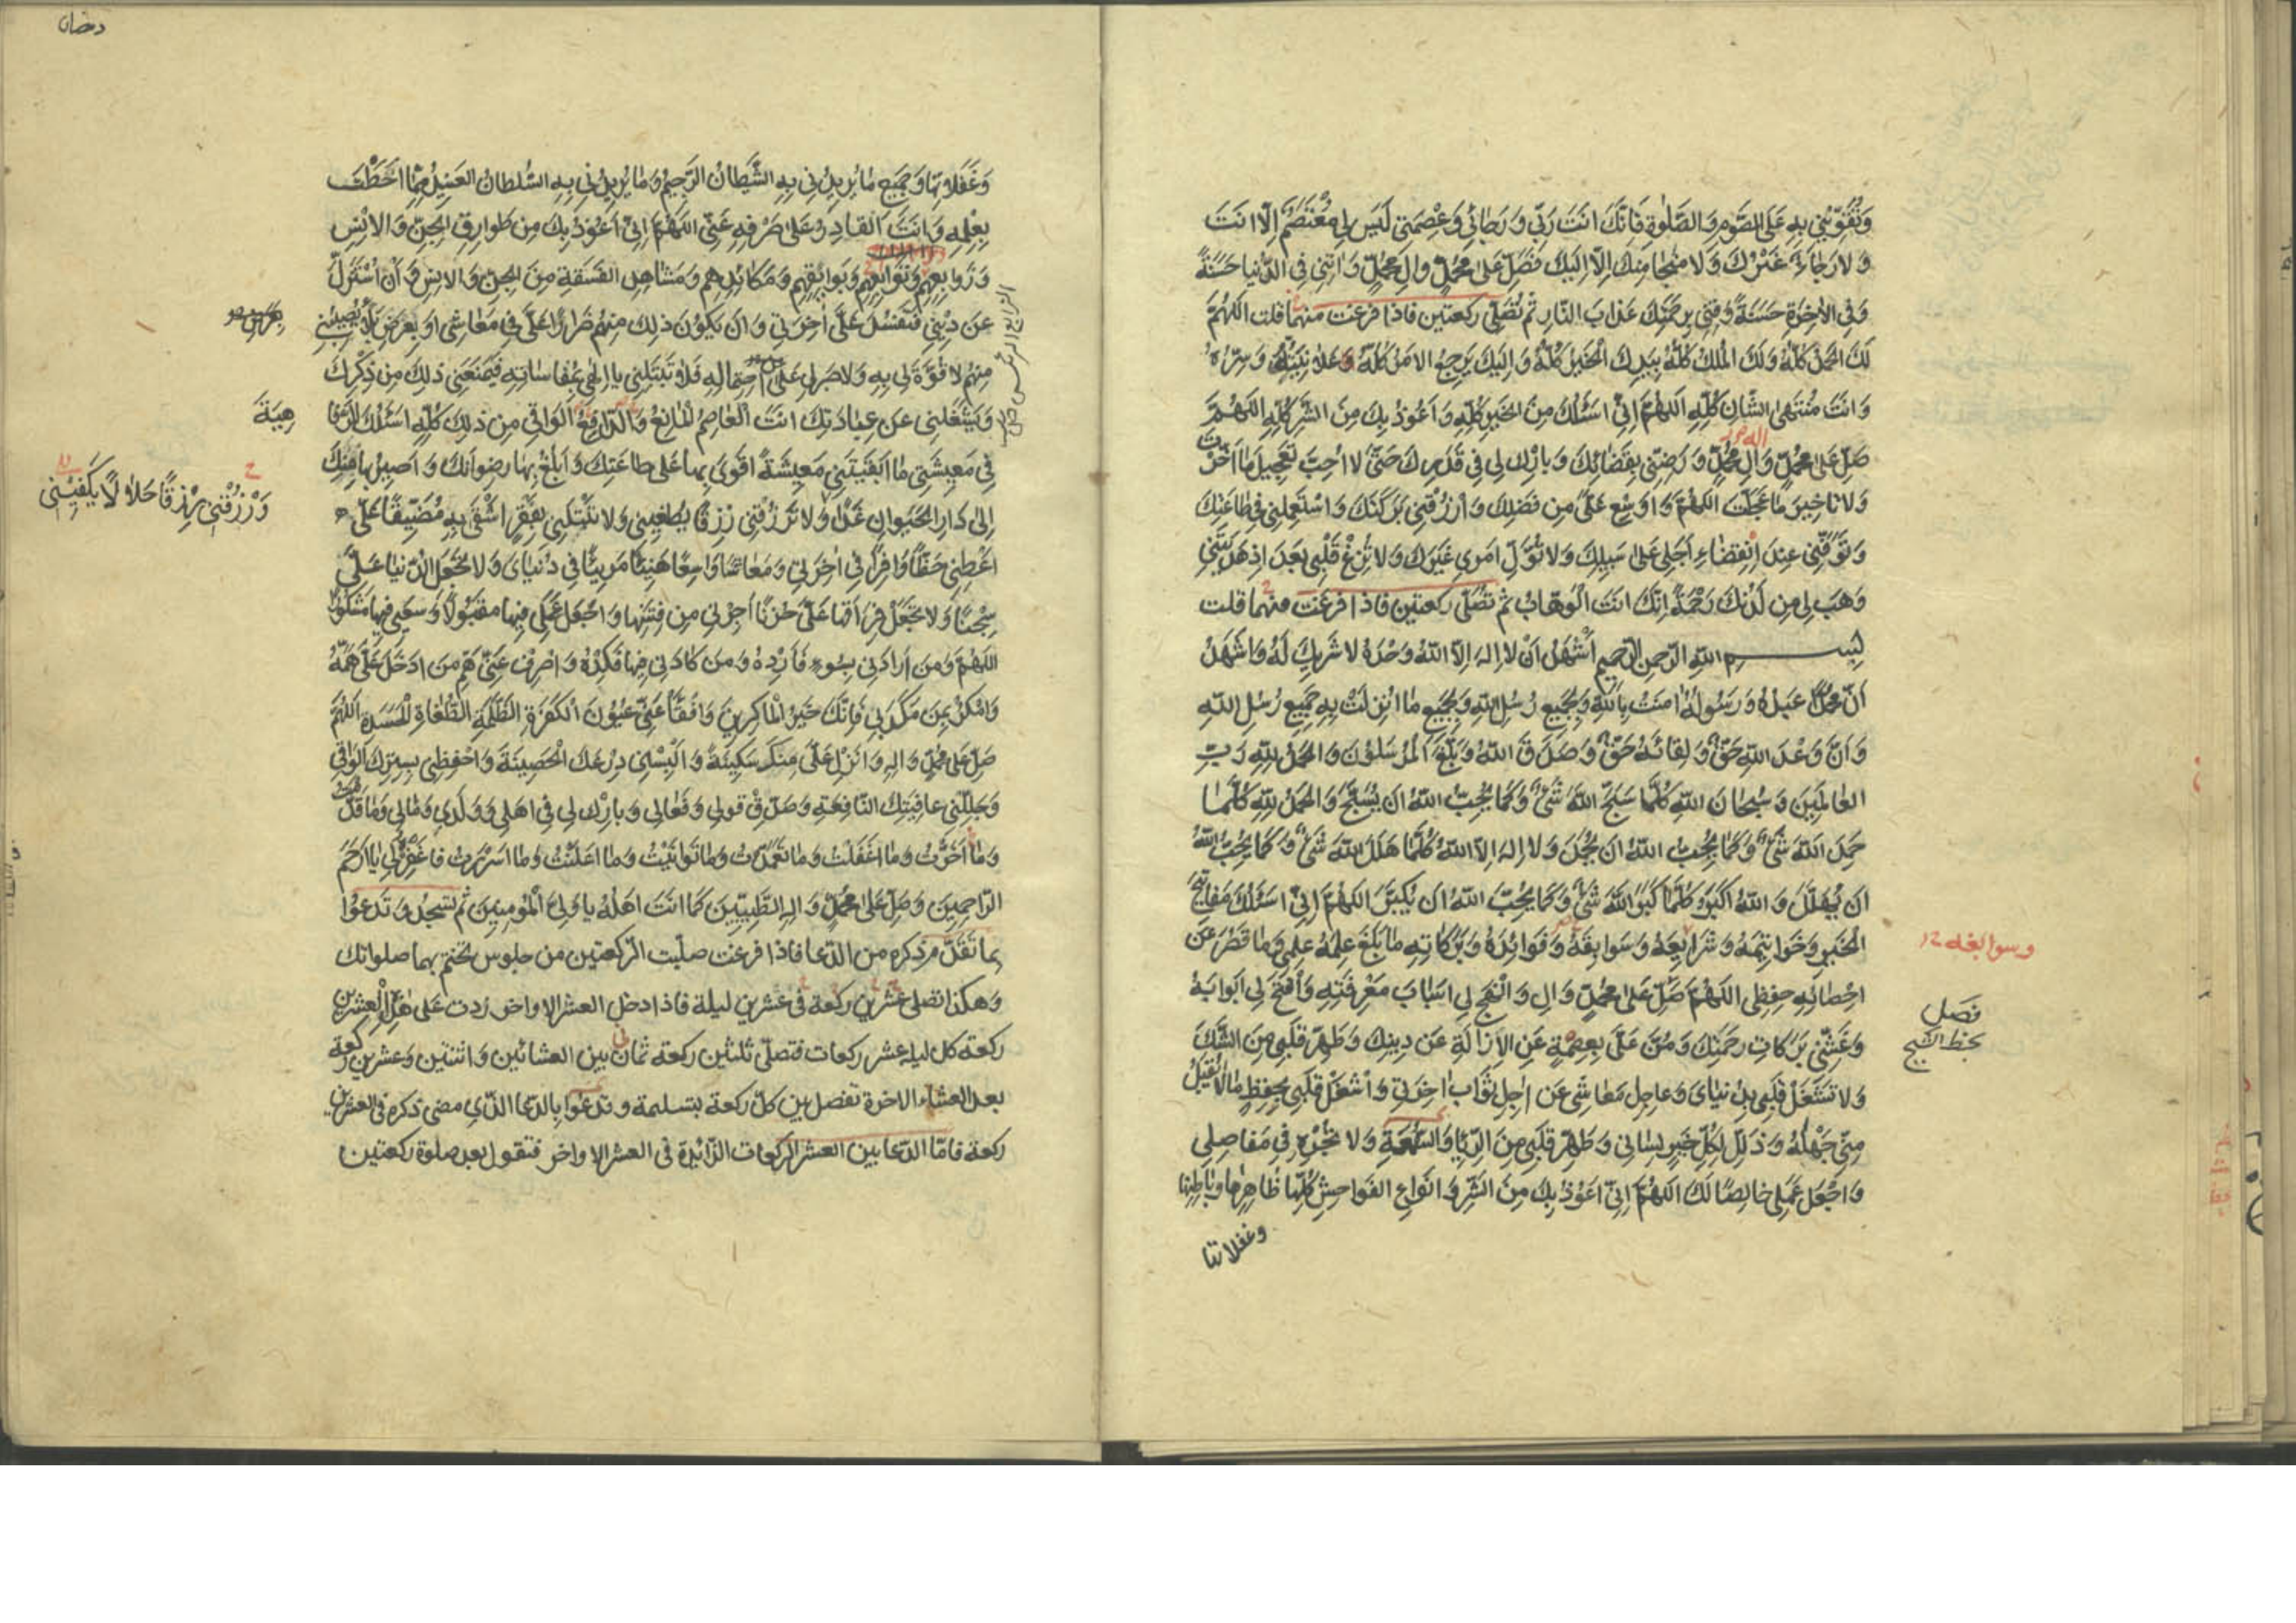 وَتُقَوِّيَنِي بِهِ عَلَى الصَّوْمِ وَالصَّلٰوةِ فَاِنَّكَ اَنْتَ رَبِّي وَرَجَائِي وَعِصْمَتِي لَيْسَ لِي مُعْتَصَمٌ اِلَّا اَنْتَ
وَلَا رَجَاءَ غَيْرُكَ وَلَا مَنْجَا مِنْكَ اِلَّا اِلَيْكَ فَصَلِّ عَلٰى مُحَمَّدٍ وَالِ مُحَمَّدٍ وَاٰتِنِي فِي الدُّنْيَا حَسَنَةً
وَفِي الْاٰخِرَةِ حَسَنَةً وَقِنِي بِرَحْمَتِكَ عَذَابَ النَّارِ ثم تُصَلِّي ركعتين فاذا فرغت منهما قلت اللهُمَّ
لَكَ الْحَمْدُ كُلُّهُ وَلَكَ الْمُلْكُ كُلُّهُ بِيَدِكَ الْخَيْرُ كُلُّهُ وَاِلَيْكَ يَرْجِعُ الْاَمْرُ كُلُّهُ عَلَانِيَتُهُ وَسِرُّهُ
وَاَنْتَ مُنْتَهَى الشَّانِ كُلِّهِ اَللّٰهُمَّ اِنِّي اَسْئَلُكَ مِنَ الْخَيْرِ كُلِّهِ وَاَعُوذُ بِكَ مِنَ الشَّرِّ كُلِّهِ اللهُمَّ
صَلِّ عَلٰى مُحَمَّدٍ وَالِ مُحَمَّدٍ وَرَضِّنِي بِقَضَائِكَ وَبَارِكْ لِي فِي قَدَرِكَ حَتّٰى لَا اُحِبَّ تَعْجِيلَ مَا اَخَّرْتَ
وَلَا تَاخِيرَ مَا عَجَّلْتَ اللهُمَّ وَاَوْسِعْ عَلَيَّ مِنْ فَضْلِكَ وَارْزُقْنِي بَرَكَتَكَ وَاسْتَعْمِلْنِي فِي طَاعَتِكَ
وَتَوَفَّنِي عِنْدَ اِنْقِضَاءِ اَجَلِي عَلٰى سَبِيلِكَ وَلَا تُوَلِّ اَمْرِي غَيْرَكَ وَلَا تُزِغْ قَلْبِي بَعْدَ اِذْ هَدَيْتَنِي
وَهَبْ لِي مِنْ لَدُنْكَ رَحْمَةً اِنَّكَ اَنْتَ الْوَهَّابُ ثم تصَلّى ركعتين فاذا فرغت منهما قلت
بِسْمِ اللهِ الرَّحْمٰنِ الرَّحِيمِ اَشْهَدُ اَنْ لَا اِلٰهَ اِلَّا اللهُ وَحْدَهُ لَا شَرِيكَ لَهُ وَاَشْهَدُ
اَنَّ مُحَمَّدًا عَبْدُهُ وَرَسُولُهُ اٰمَنْتُ بِاللهِ وَبِجَمِيعِ رُسُلِ اللهِ وَبِجَمِيعِ مَا اُنْزِلَتْ بِهِ جَمِيعُ رُسُلِ اللهِ
وَاَنَّ وَعْدَ اللهِ حَقٌّ وَلِقَائَهُ حَقٌّ وَصَدَقَ اللهُ وَبَلَّغَ الْمُرْسَلُونَ وَالْحَمْدُ لِلّٰهِ رَبِّ
الْعَالَمِينَ وَسُبْحَانَ اللهِ كُلَّمَا سَبَّحَ اللهَ شَيْءٌ وَكَمَا يُحِبُّ اللهُ اَنْ يُسَبَّحَ وَالْحَمْدُ لِلّٰهِ كُلَّمَا
حَمِدَ اللهَ شَيْءٌ وَكَمَا يُحِبُّ اللهُ اَنْ يُحْمَدَ وَلَا اِلٰهَ اِلَّا اللهُ كُلَّمَا هَلَّلَ اللهَ شَيْءٌ وَكَمَا يُحِبُّ اللهُ
اَنْ يُهَلَّلَ وَاللهُ اَكْبَرُ كُلَّمَا كَبَّرَ اللهَ شَيْءٌ وَكَمَا يُحِبُّ اللهُ اَنْ يُكَبَّرَ اللهُمَّ اِنِّي اَسْئَلُكَ مَفَاتِيحَ
الْخَيْرِ وَخَوَاتِيمَهُ وَشَرَايِعَهُ وَسَوَابِقَهُ وَفَوَائِدَهُ وَبَرَكَاتِهِ مَا بَلَغَ عِلْمَهُ عِلْمِي وَمَا قَصُرَ عَنْ
وسوابغه
اِحْصَائِهِ حِفْظِي اللهُمَّ صَلِّ عَلٰى مُحَمَّدٍ وَالِ وَانْهَجْ لِي اَسْبَابَ مَعْرِفَتِهِ وَافْتَحْ لِي اَبْوَابَهُ
فصل
بخط الشيخ
وَغَشِّنِي بَرَكَاتِ رَحْمَتِكَ وَمُنَّ عَلَيَّ بِعِصْمَةٍ عَنِ الْاِزَالَةِ عَنْ دِينِكَ وَطَهِّرْ قَلْبِي مِنَ الشَّكِّ
وَلَا تَشْغَلْ قَلْبِي بِدُنْيَايَ وَعَاجِلِ مَعَاشِي عَنْ اٰجِلِ ثَوَابِ اٰخِرَتِي وَاشْغَلْ قَلْبِي بِحِفْظِ مَا لَا تَقْبَلُ
مِنِّي جَهْلَهُ وَذَلِّلْ لِكُلِّ خَيْرٍ لِسَانِي وَطَهِّرْ قَلْبِي مِنَ الرِّيَا وَالسُّمْعَةِ وَلَا تُجْرِهِ فِي مَفَاصِلِي
وَاجْعَلْ عَمَلِي خَالِصًا لَكَ اللهُمَّ اِنِّي اَعُوذُ بِكَ مِنَ الشَّرِّ وَاَنْوَاعِ الْفَوَاحِشِ كُلِّهَا ظَاهِرِهَا وَبَاطِنِهَا
وغفلاتها
وَغَفَلَاتِهَا وَجَمِيعِ مَا يُرِيدُنِي بِهِ الشَّيْطَانُ الرَّجِيمُ وَمَا يُرِيدُنِي بِهِ السُّلْطَانُ الْعَنِيدُ مِمَّا اَحَطْتَ
بِعِلْمِهِ وَاَنْتَ الْقَادِرُ عَلٰى صَرْفِهِ عَنِّي اللهُمَّ اِنِّي اَعُوذُ بِكَ مِنْ طَوَارِقِ الْجِنِّ وَالْاِنْسِ
وَزَوَابِعِهِمْ وَتَوَابِعِهِمْ وَبَوَائِقِهِمْ وَمَكَائِدِهِمْ وَمَشَاهِدِ الْفَسَقَةِ مِنَ الْجِنِّ وَالْاِنْسِ وَاَنْ اُسْتَزَلَّ
عَنْ دِينِي فَتَفْسُدَ عَلَيَّ اٰخِرَتِي وَاَنْ يَكُونَ ذٰلِكَ مِنْهُمْ ضَرَرًا عَلَيَّ فِي مَعَاشِي اَوْ يَعْرِضَ بَلَاءٌ يُصِيبُنِي
مِنْهُمْ لَا قُوَّةَ لِي بِهِ وَلَا صَبْرَ لِي عَلَى احْتِمَالِهِ فَلَا تَبْتَلِنِي يَا اِلٰهِي بِمُقَاسَاتِهِ فَيَمْنَعَنِي ذٰلِكَ مِنْ ذِكْرِكَ
وَيَشْغَلَنِي عَنْ عِبَادَتِكَ اَنْتَ الْعَاصِمُ الْمَانِعُ وَالدَّافِعُ الْوَاقِي مِنْ ذٰلِكَ كُلِّهِ اَسْئَلُكَ الرَّفَاهِيَةَ
فِي مَعِيشَتِي مَا اَبْقَيْتَنِي مَعِيشَةً اَقْوٰى بِهَا عَلٰى طَاعَتِكَ وَاَبْلُغُ بِهَا رِضْوَانَكَ وَاَصِيرُ بِهَا مِنْكَ
وَارْزُقْنِي رِزْقًا حَلَالًا يَكْفِينِي
اِلٰى دَارِ الْحَيَوَانِ غَدًا وَلَا تَرْزُقْنِي رِزْقًا يُطْغِينِي وَلَا تَبْتَلِنِي بِفَقْرٍ اَشْقٰى بِهِ مُضَيِّقًا عَلَيَّ
اَعْطِنِي حَظًّا وَافِرًا فِي اٰخِرَتِي وَمَعَاشًا وَاسِعًا هَنِيئًا مَرِيئًا فِي دُنْيَايَ وَلَا تَجْعَلِ الدُّنْيَا عَلَيَّ
سِجْنًا وَلَا تَجْعَلْ فِرَاقَهَا عَلَيَّ حُزْنًا اَجِرْنِي مِنْ فِتْنَتِهَا وَاجْعَلْ عَمَلِي فِيهَا مَقْبُولًا وَسَعْيِي فِيهَا مَشْكُورًا
اللهُمَّ وَمَنْ اَرَادَنِي بِسُوءٍ فَاَرِدْهُ وَمَنْ كَادَنِي فِيهَا فَكِدْهُ وَاصْرِفْ عَنِّي هَمَّ مَنْ اَدْخَلَ عَلَيَّ هَمَّهُ
وَامْكُرْ بِمَنْ مَكَرَ بِي فَاِنَّكَ خَيْرُ الْمَاكِرِينَ وَافْقَأْ عَنِّي عُيُونَ الْكَفَرَةِ الظَّلَمَةِ الطُّغَاةِ الْحَسَدَةِ اَللّٰهُمَّ
صَلِّ عَلٰى مُحَمَّدٍ وَاٰلِهِ وَاَنْزِلْ عَلَيَّ مِنْكَ سَكِينَةً وَاَلْبِسْنِي دِرْعَكَ الْحَصِينَةَ وَاحْفَظْنِي بِسِتْرِكَ الْوَاقِي
وَجَلِّلْنِي عَافِيَتَكَ النَّافِعَةِ وَصَدِّقْ قَوْلِي وَفَعَالِي وَبَارِكْ لِي فِي اَهْلِي وَوَلَدِي وَمَالِي وَمَا قَدَّمْتُ
وَمَا اَخَّرْتُ وَمَا اَغْفَلْتُ وَمَا تَعَمَّدْتُ وَمَا تَوَانَيْتُ وَمَا اَعْلَنْتُ وَمَا اَسْرَرْتُ فَاغْفِرْ لِي يَا اَرْحَمَ
الرَّاحِمِينَ وَصَلِّ عَلٰى مُحَمَّدٍ وَاٰلِهِ الطَّيِّبِينَ كَمَا اَنْتَ اَهْلُهُ يَا وَلِيَّ الْمُؤْمِنِينَ ثم تسجد وَتَدعُوا
بما تقدّم ذكره من الدّعا فاذا فرغت صلّيت الرّكعتين من جلوس تختم بهما صلواتك
وهكذا تصلى عشرين ركعة فى عشرين ليلة فاذا دخل العشر الاواخر زدت على هذه العشرين
ركعة كل ليلة عشر ركعات فتصلّى ثلثين ركعة ثمان بين العشائين واثنتين وعشرين ركعة
بعد العشاء الاخرة تفصل بين كلّ ركعة بتسليمة وتدعوا بالدّعا الّذي مضى ذكره فى العشرين
ركعة فامّا الدّعا بين العشر الركعات الزّائدة فى العشر الاواخر فتقول بعد صلوة ركعتين